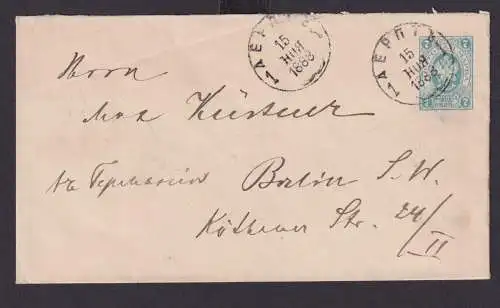 1 ДЕРПТЪ
15
НОЯ
1888
1 ДЕРПТЪ
15
НОЯ
1888
7 7
7 7
Herrn
Max Küstner
въ Германiю Berlin S. W.
Köthener Str. 24/II